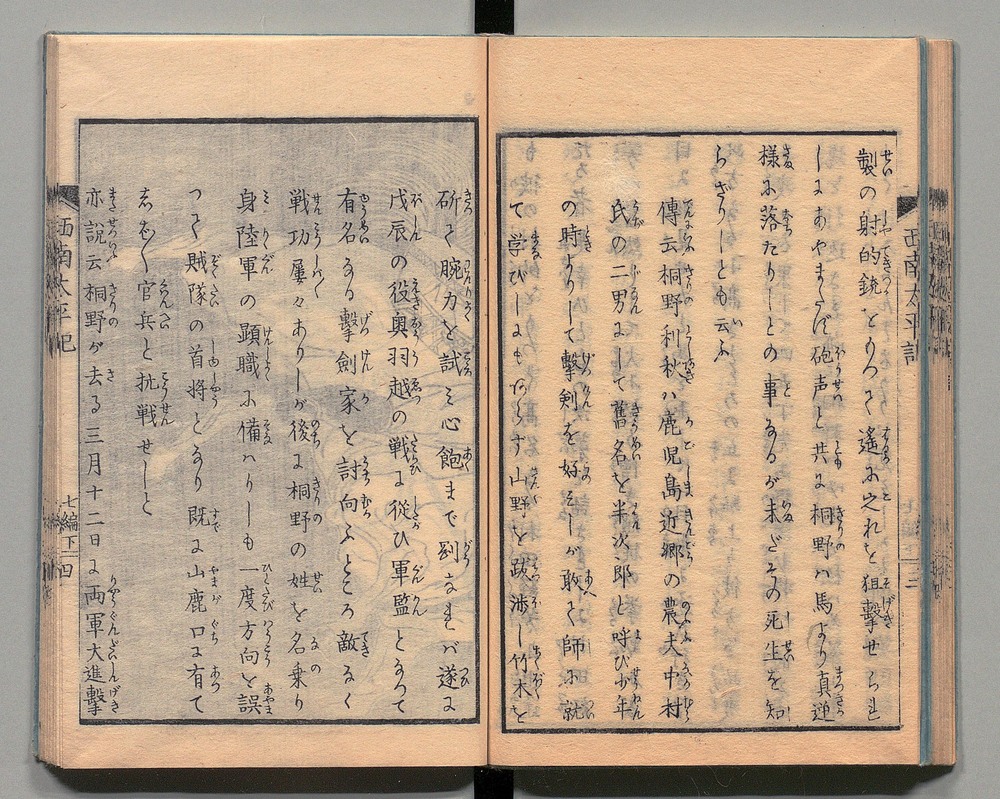 製の射的銃をもつて遙に之れを狙撃せられ
しにあやまたず砲声と共に桐野ハ馬より真逆
様に落たりしとの事なるが未だその死生を知
らざりしとも云ふ
傳云桐野利秋ハ鹿児島近郷の農夫中村
氏の二男にして舊名を半次郎と呼び少年
の時よりして撃剣を好みしが敢て師に就
て学びしにもあらず山野を跋渉し竹木を
斫て腕力を試ミ心飽まで剛なれバ遂に
戊辰の役奥羽越の戦に従ひ軍監となつて
有名なる撃劍家を討向ふところ敵なく
戦功屢々ありしが後に桐野の姓を名乗り
身陸軍の顕職に備ハりしも一度方向を誤
つて賊隊の首将となり既に山鹿口に有て
志ば〳〵官兵と抗戦せしと
亦説云桐野が去る三月十二日に両軍大進撃
西南太平記
三
西南太平記
七編下
四